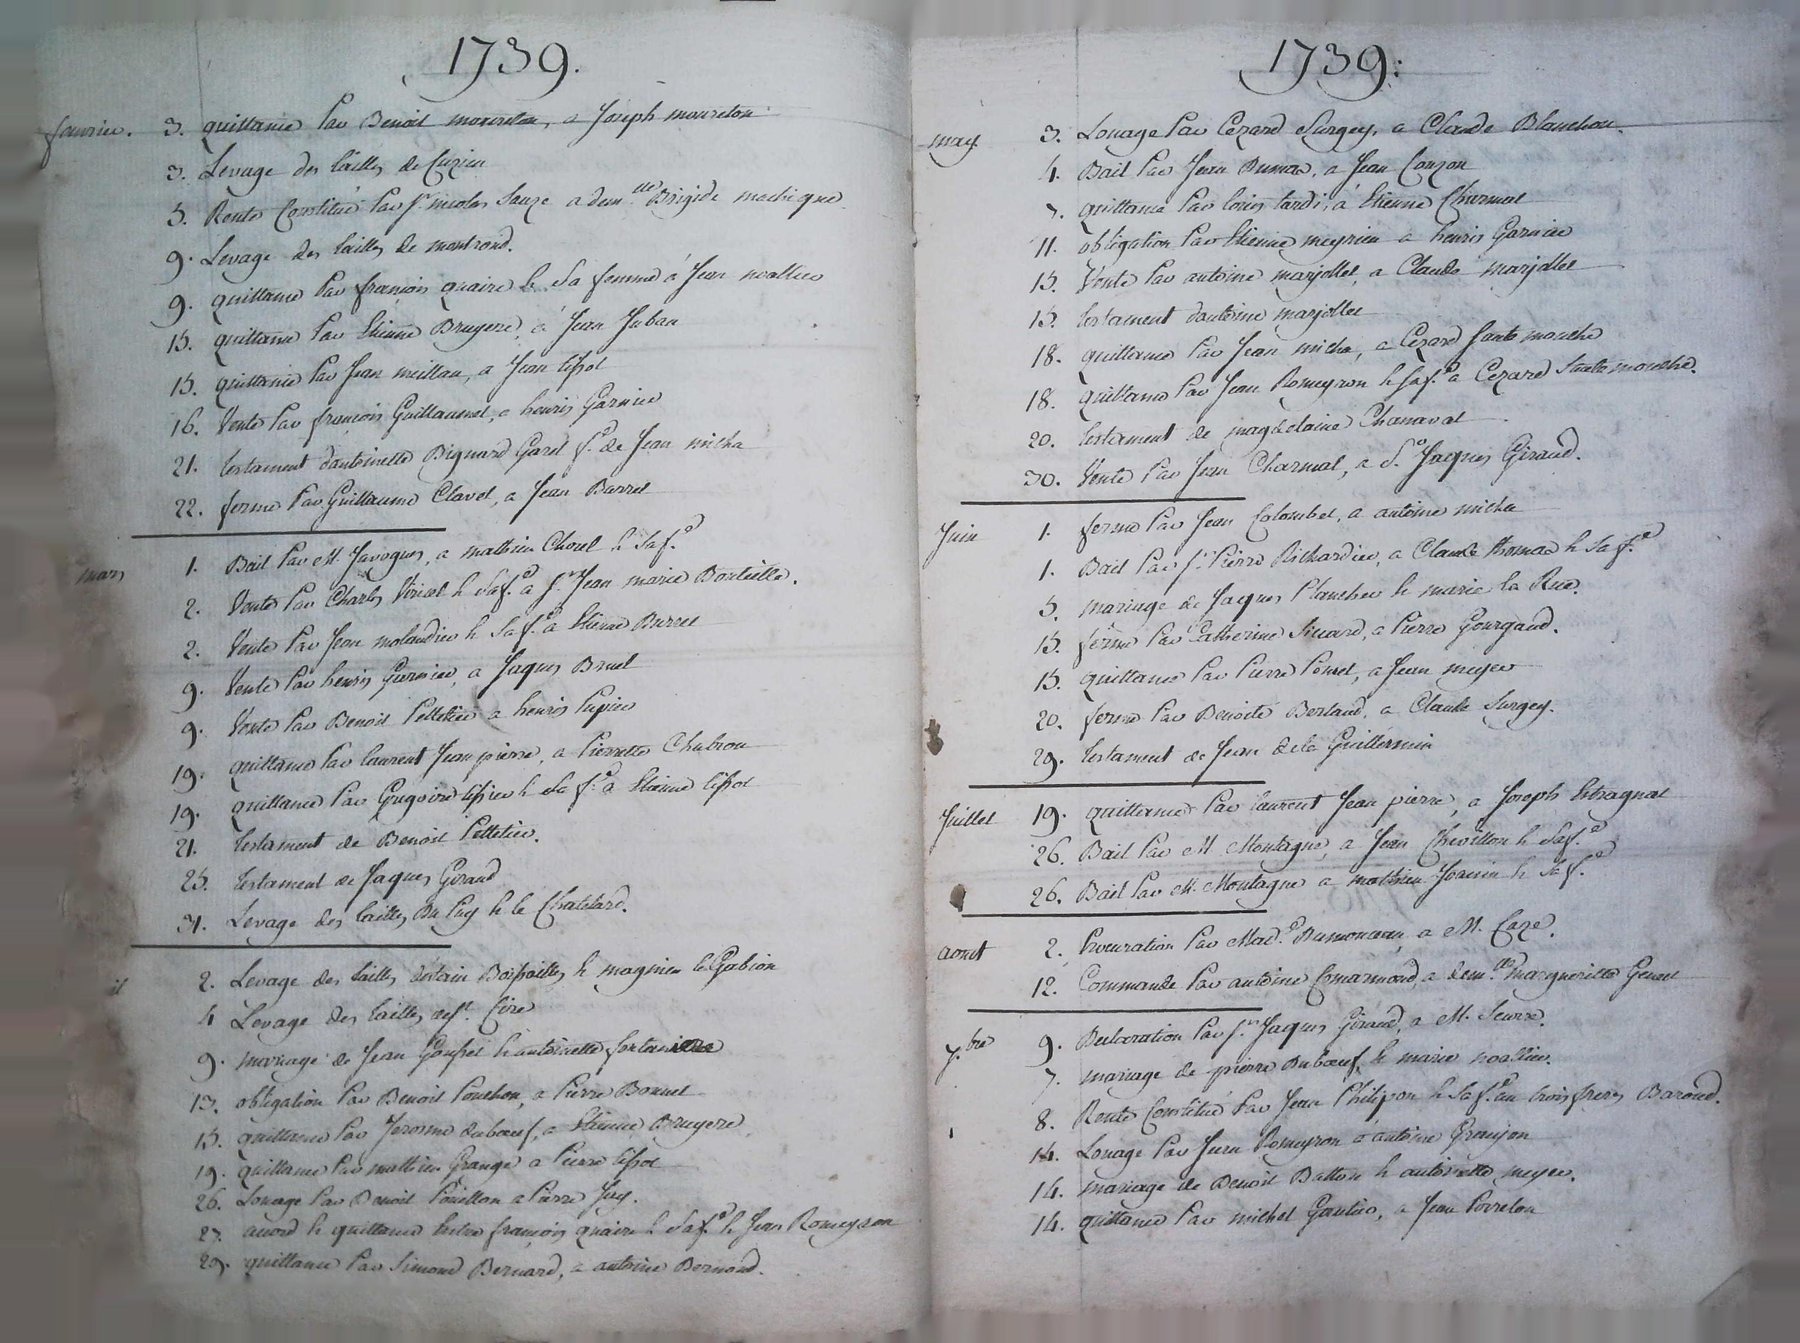 1739.
fevrier. 3. quittance Par Benoit moureton, a Joseph moureton
3. Levage des tailles de Cuzieu
5. Rente Constitué Par Sr. nicolas Sauze a dem.lle Brigide
9. Levage des tailles de montrond.
9. quittance Par françois quaire & Sa femme á Jean
15. quittance Par Etienne Bruyere, á Jean Juban
15. quittance Par Jean meillau, a Jean tissot
16. Vente Par françois Guillaumet, a henris Garnier
21. testament dantoinette Bignard Garel f.e de Jean micha
22. ferme Par Guillaume Clavel, a Jean Barret
mars 1. Bail Par M. Javogues, a mathieu Chorel & Sa f.e
2. Vente Par Charles Virieol & Sa f.e a Sr. Jean marie Bouteille.
2. Vente Par Jean molandier & Sa f.e a Etienne
9. Vente Par henris Garnier, a Jaques Bruel
9. Vente Par Benoit Pelletier a henris Pupier
19. quittance Par laurent Jean pierre, a Pierrette Chabrou
19. quittance Par Gregoire tissier & Sa f.e a Etienne tissot
21. testament de Benoit Pelletier.
25. testament de Jaques Giraud
31. Levage des tailles Du Puy & le Chatelard.
il 2. Levage des tailles Boissailles & magnieu le Gabion
4 Levage des tailles de St. Cire
9. mariage de Jean & antoinette
13. obligation Par Benoit Ponchon, a Pierre Bonnet
15. quittance Par Jerosme duboeuf, a Etienne Bruyere
19. quittance Par mathieu Grange a Pierre tissot
26. Louage Par Benoit Pouillon a Pierre Juy.
27. acord & quittance Entre françois quaire & Sa f.e & Jean Romeyron
29. quittance Par Simond Bernard, a antoine Bernard.
1739.
may 3. Louage Par Cezard Surgey, a Claude Blanchon.
4. Bail Par Jean Dumas, a Jean Conzon
7. quittance Par louis tardi, á Etienne Charmat
11. obligation Par Etienne meyrieu a henris Garnier
15. Vente Par antoine marjollet, a Claude marjollet
15. testament dantoine marjollet
18. quittance Par Jean micha, a Cezard Sautemouche
18. quittance Par Jean Romeyron & Sa f.e a Cezard Sautemouche.
20. testament de magdelaine Chanavat
30. Vente Par Jean Charmat, a Sr. Jaques Giraud.
Juin 1. ferme Par Jean Colombet, a antoine micha
1. Bail Par Sr. Pierre Richardier, a Claude thomas & Sa f.e
5. mariage de Jaques Planchet & marie la Rue.
15. ferme Par Catherine Siccard, a Pierre Gourgaud.
15. quittance Par Pierre Poncet, a Jean meyer
20. ferme Par Benoite Bertaud, a Claude Surgey.
29. testament de Jean dela Guillermin
Juillet 19. quittance Par laurent Jean pierre, a Joseph Estragnat
26. Bail Par M Montagne, a Jean Chevillon & Sa f.e
26. Bail Par M. Montagne a mathieu & Sa f.e
aout 2. Procuration Par Mad.e Dumonceau, a M. Caze.
12. Commande Par antoine Comarmond, a dem.lle margueritte Genest
7.bre 9. Declaration Par Sr. Jaques Giraud, a M. Seurre.
7. mariage de pierre Duboeuf & marie noallieu.
8. Rente Constitué Par Jean Philipon & Sa f.e au trois freres Baroud.
14. Louage Par Jean Romeyron á antoine Granjon
14. mariage de Benoit Batton & antoinette meyer.
14. quittance Par michel Gautier, a Jean Porreton